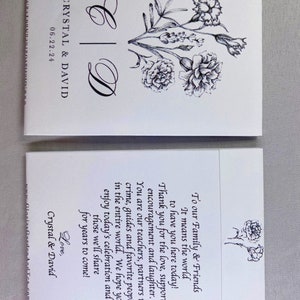 C | D
CRYSTAL & DAVID
06.22.24
To our Family & Friends
It means the world
to have you here today!
Thank you for the love, support,
encouragement and laughter.
You are our teachers, partners in
crime, guides and favorite people
in the entire world. We hope you
enjoy today's celebration and
those we'll share
for years to come!
Love,
Crystal & David